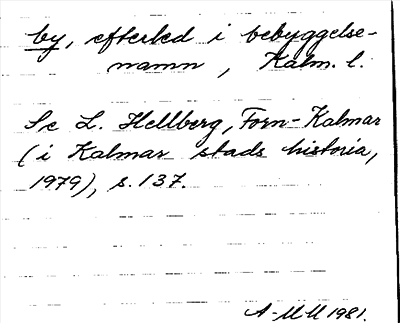 by, efterled i bebyggelse-
namn, Kalm. l.
Se L. Hellberg, Forn-Kalmar
(i Kalmar stads historia,
1979), s. 137.
A-MM 1981.